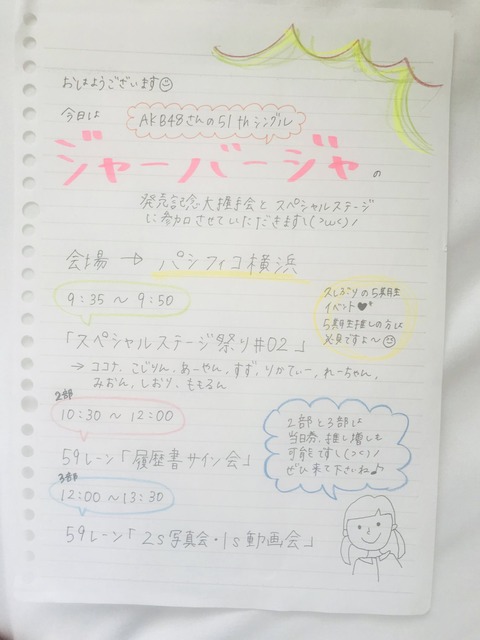 おはようございます☺
今日は AKB48さんの51thシングル
ジャーバージャの
発売記念大握手会とスペシャルステージ
に参加させていただきます\(^ω^)/
会場 → パシフィコ横浜
9:35 〜 9:50
久しぶりの5期生
イベント♥*
5期生推しの方は
必見ですよ〜☺
「スペシャルステージ祭り#02」
→ ココナ、こじりん、あーやん、すず、りかてぃー、れーちゃん、
みおん、しおり、ももるん
2部
10:30 〜 12:00
59レーン「履歴書サイン会」
2部と3部は
当日券、推し増しも
可能ですし(っ'ヮ'c)!
ぜひ来て下さいね♪
3部
12:00 〜 13:30
59レーン「2s写真会・1s動画会」